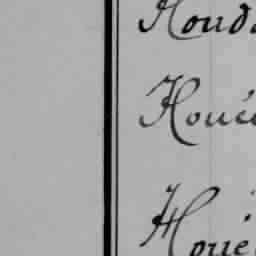 Houd
Houé
Houe